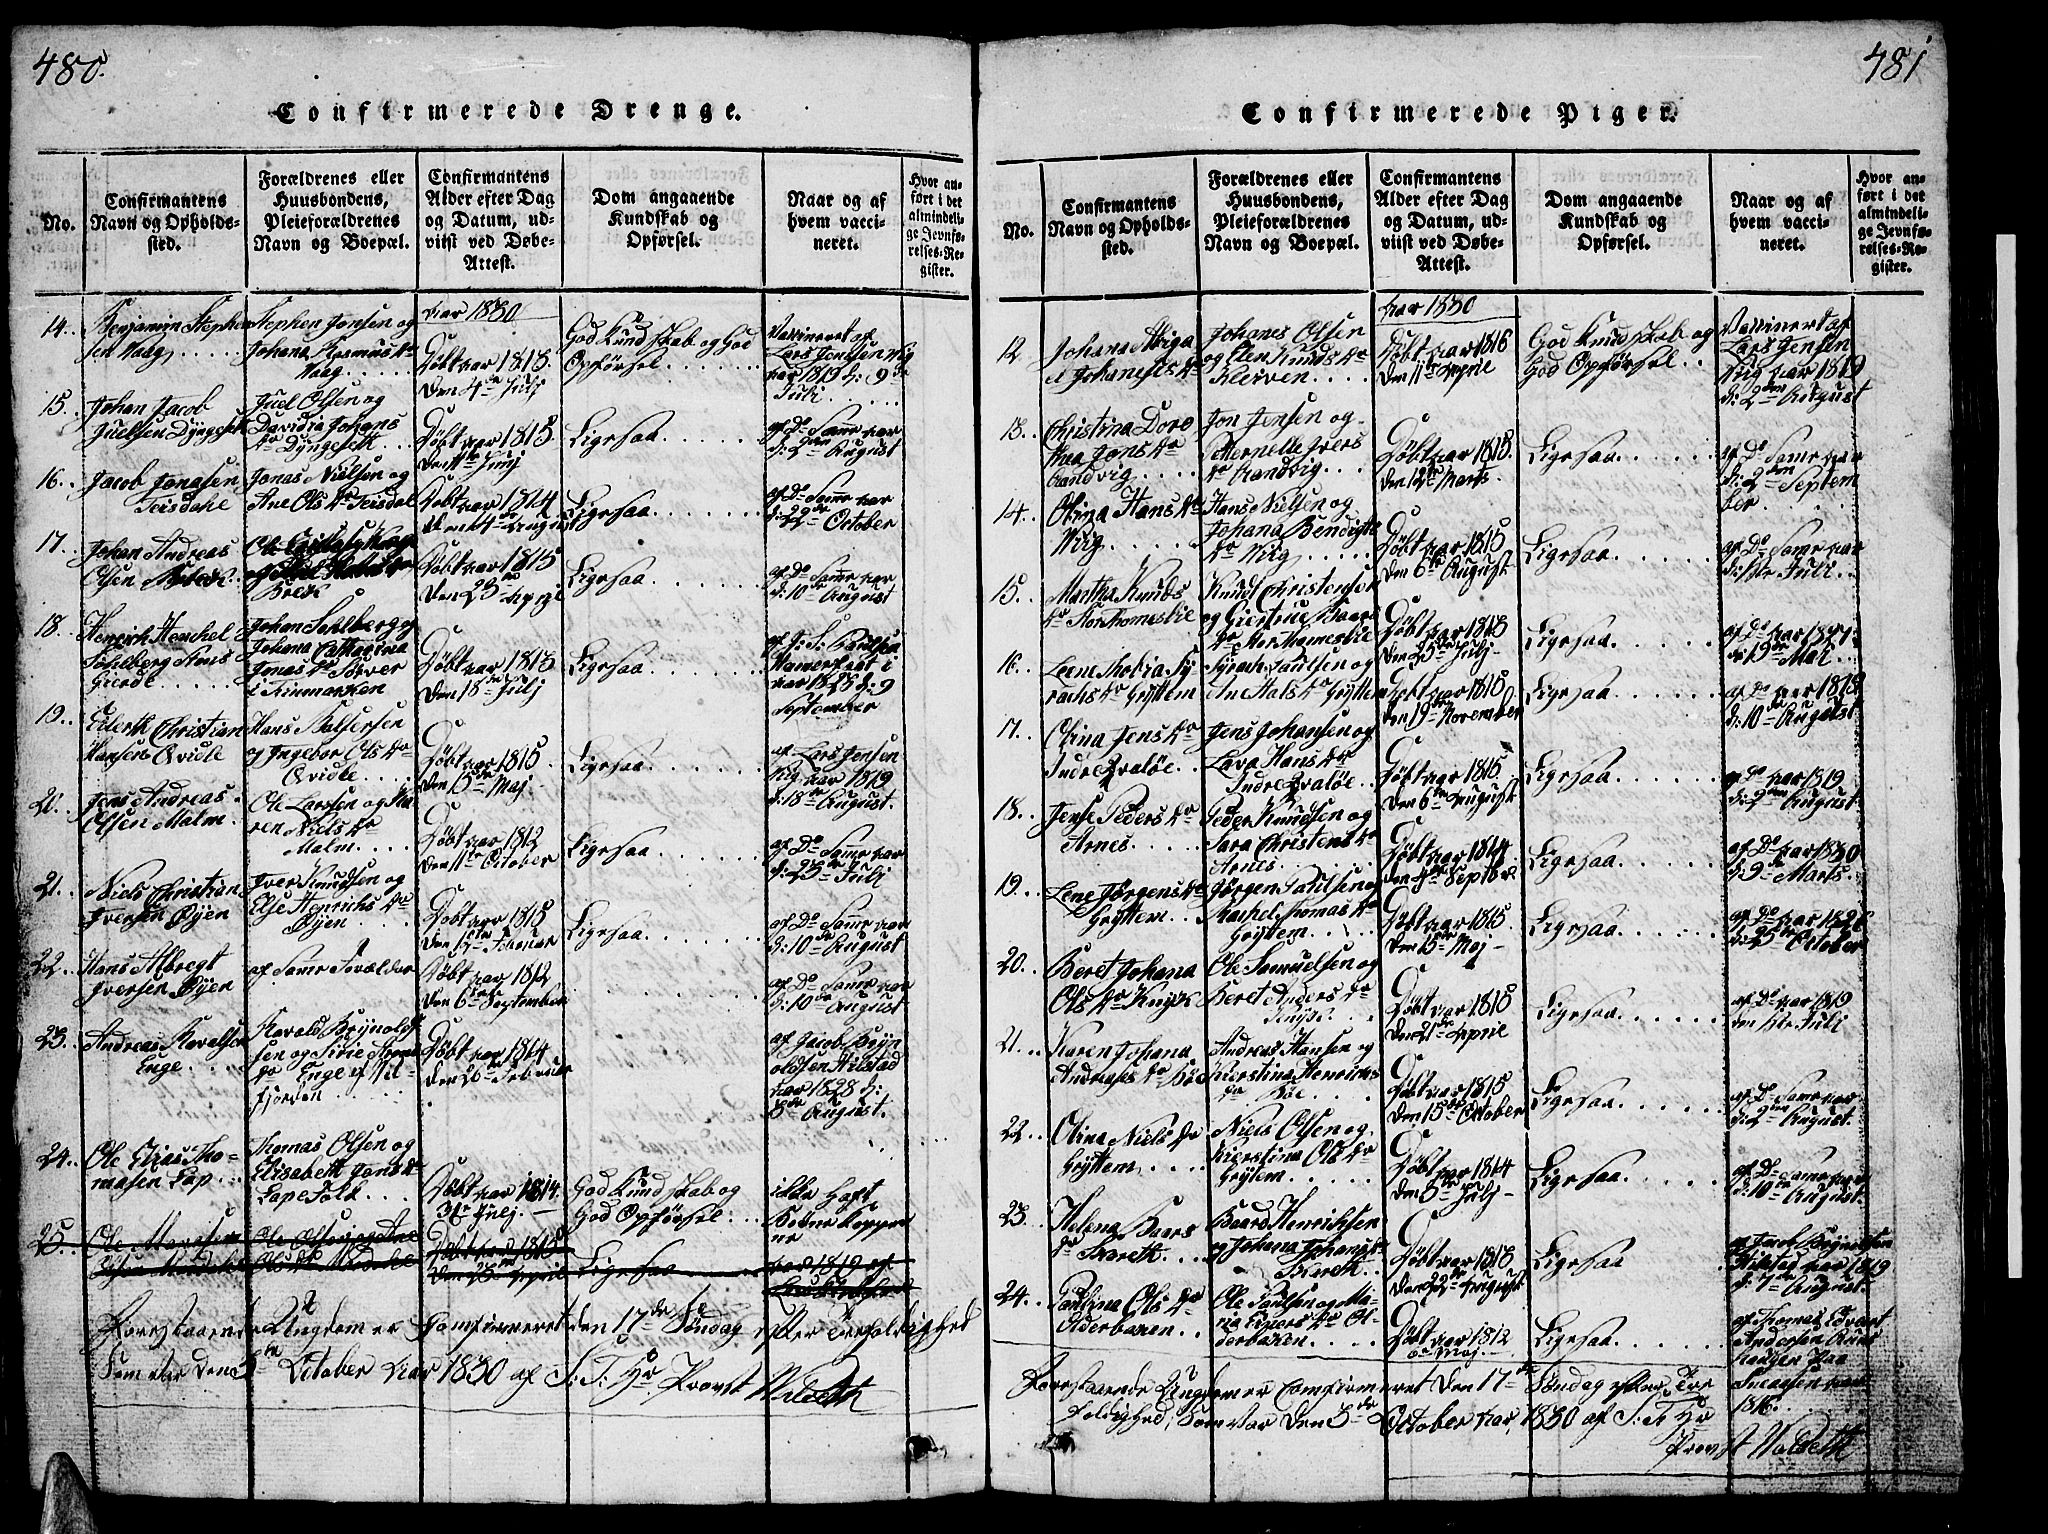 480.
Confirmerede Drenge.
No.
Confirmantens
Navn og Opholds-
sted.
Forældrenes eller
Huusbondens,
Pleieforældrenes
Navn og Boepæl.
Confirmantens
Alder efter Dag
og Datum, ud-
viist ved Døbe-
Attest.
Dom angaaende
Kundskab og
Opførsel.
Naar og af
hvem vacci-
neret.
Hvor an-
ført i det
almindeli-
ge Jevnfø-
relses-Re-
gister.
Aar 1830
14..
Benjamin Stephen
sen Vaag
Stephen Jensen og
Johana Rasmus Dr
Vaag
Døbt aar 1815
den 4de Julj
God Kundskab og God
Opførsel
Vaccineret af
Lars Jensen Vig
aar 1819 d: 9de
Juli
15.
Johan Jacob
Juelsen Dyngeseth
Juel Olsen og
Davidia Johans
Dr Dyngeseth
Døbt aar 1815
den 11te Junj
Ligesaa
af Do Same aar
d: 2den August
16..
Jacob Jonasen
Teisdahl
Jonas Nielsen og
Ane Ols Dr Teisdal
Døbt aar 1814
den 4de August
Ligesaa
af Do Same aar
d: 22de October
17..
Johan Andreas
Olsen
Døbt aar 1815
den 23de April
Ligesaa
af Do Same aar
d: 10de August
18..
Henrich Henchel
Sahlberg
Gierde
Johan Sahlberg og
Johana Cathrina
Jonas Dr Sørver
i Finmarken
Døbt aar 1815
den 18de Julj
Ligesaa
af J. S. Paulsen
Hamerfæst i
aar 1828 d: 9
September
19..
Eilerth Christian
Hansen Qvidle
Hans Baltsersen
og Ingebor Ols Dr
Qvidle
Døbt aar 1815
den 15de Maj
Ligesaa
af Lars Jensen
Vig aar 1819
d: 18de August
20.
Jens Andreas
Olsen Malm
Ole Larssen og Ka
ren Niels Dr
Malm
Døbt aar 1812
den 11te October
Ligesaa
af Do Same aar
d: 23de Juli
21..
Niels Christian
Iversen Øyen
Iver Knudsen og
Else Henrichs Dr
Øyen
Døbt aar 1815
Ligesaa
af Do Same aar
d: 10de August
22..
Hans Albregt
Iversen Øyen
af Same Forælder
Døbt aar 1812
den 6te September
af Do Same aar
d: 10de August
23..
Andreas Havalsen
Enge
Harald Brynolf
sen og Sirie
Dr Enge
fjorden
Døbt aar 1814
den 26de Februar
af Jacob Bryn
olfsen Hilstad
aar 1828 d:
5te August
24..
Ole Elias Tho-
masen Lap
Thomas Olsen og
Elisabeth Jons Dr
Lape Folk
Døbt aar 1814
3die Julj
God Kundskab og
God Opførsel
ikke Haft
Kopper
25..
Ligesaa
Forestaaende Ungdom er Comfirmeret den 17de Søndag efter Trefoldighed
Som var den 3de October Aar 1830 af S: T: Hr Provst Voldeth
481
Confirmerede Piger.
No.
Confirmantens
Navn og Opholds-
sted.
Forældrenes eller
Huusbondens,
Pleieforældrenes
Navn og Boepæl.
Confirmantens
Alder efter Dag
og Datum, ud-
viist ved Døbe-
Attest.
Dom angaaende
Kundskab og
Opførsel.
Naar og af
hvem vacci-
neret.
Hvor an-
ført i det
almindeli-
ge Jevnfø-
relses-Re-
gister.
Aar 1830
12
Johana Abiga
el Johanesis Dr
Johanes Olsen
og Elen Knuds Dr
Kleiven
Døbt aar 1816
den 11te Aprie
God Kundskab og
God Opførsel
Vaccinert af
Lars Jensen
Vig aar 1819
d: 2den August
13.
Christina Doro
thea Jons Dr
Sandvig
Jon Jensen og
Peternelle Ivers
Dr Sandvig
Døbt aar 1815.
den 12te Marts.
Ligesaa
af Do Same aar
d: 2den Septem
ber
14..
Olina Hans Dr
Vig
Hans Nielsen og
Johana Bendigte
Dr Vig
Døbt aar 1815
den 6te August
Ligesaa
af Do Same aar
d: 1ste Juli
15..
Martha Knuds
Dr
Knud Christensen
og Giertrue Baars
Døbt aar 1815
den 23de Julj
Ligesaa
d: 19de Mai
16..
Lene Maria Sy
rachs Dr Gryttem
Syrach Paulsen og
An Mats Dr Gryttem
Døbt aar 1815
den 19de November
Ligesaa
d: 10de August
17..
Olina Jens Dr
Indre Fraløe
Jens Johansen og
Lava Hans Dr
Indre Fraløe
Døbt aar 1815.
den 6te August
Ligesaa
af Do aar 1819
d: 2den August
18..
Jense Peders Dr
Arnes
Peder Knudsen og
Sara Christens Dr
Arnes
Døbt aar 1814
den 4de Septbr.
Ligesaa
af Do aar 1830
d: 9de Marts
19.
Lene Jørgens Dr
Gryttem
Jørgen Paulsen og
Machel Thomas Dr
Gryttem
Døbt aar 1815
den 15de Maj
Ligesaa
d: 25de October
20.
Beret Johana
Ols Dr Knyxe
Ole Samuelsen og
Beret Anders Dr
Knyxe
Døbt aar 1815
den 21de Aprie
Ligesaa
af Do aar 1819
den 1ste Juli
21..
Karen Johana
Andreas Dr Bøe
Andreas Hansen og
Kierstina Henrichs
Dr Bøe
Døbt aar 1815
den 15de October
Ligesaa
af Do Same aar
d: 2den August
22..
Olina Niels Dr
Gryttem
Niels Olsen og
Kierstina Ols Dr
Gryttem
Døbt aar 1814
den 3de Julj
Ligesaa
af Do Same aar
d: 10de August
23..
Helena Baars
Dr Bareth
Baard Henrichsen
og Johana Johans
Dr Bareth
Døbt aar 1815
den 22de August
Ligesaa
af Jacob Brynolfsen
Hilstad aar 1819
d: 7de August
24..
Paulina Ols Dr
Olderbaren
Ole Paulsen og Ma-
ria Eners Dr Ol-
derbaren
Døbt aar 1812
6te Maj
Ligesaa
af Thomas Edvart
Andersen
aar
1816
Forestaaende Ungdom er Comfirmeret den 17de Søndag efter Tre
foldighed, Som Var den 3de October Aar, 1830 af S: T: Hr
Provst Voldeth